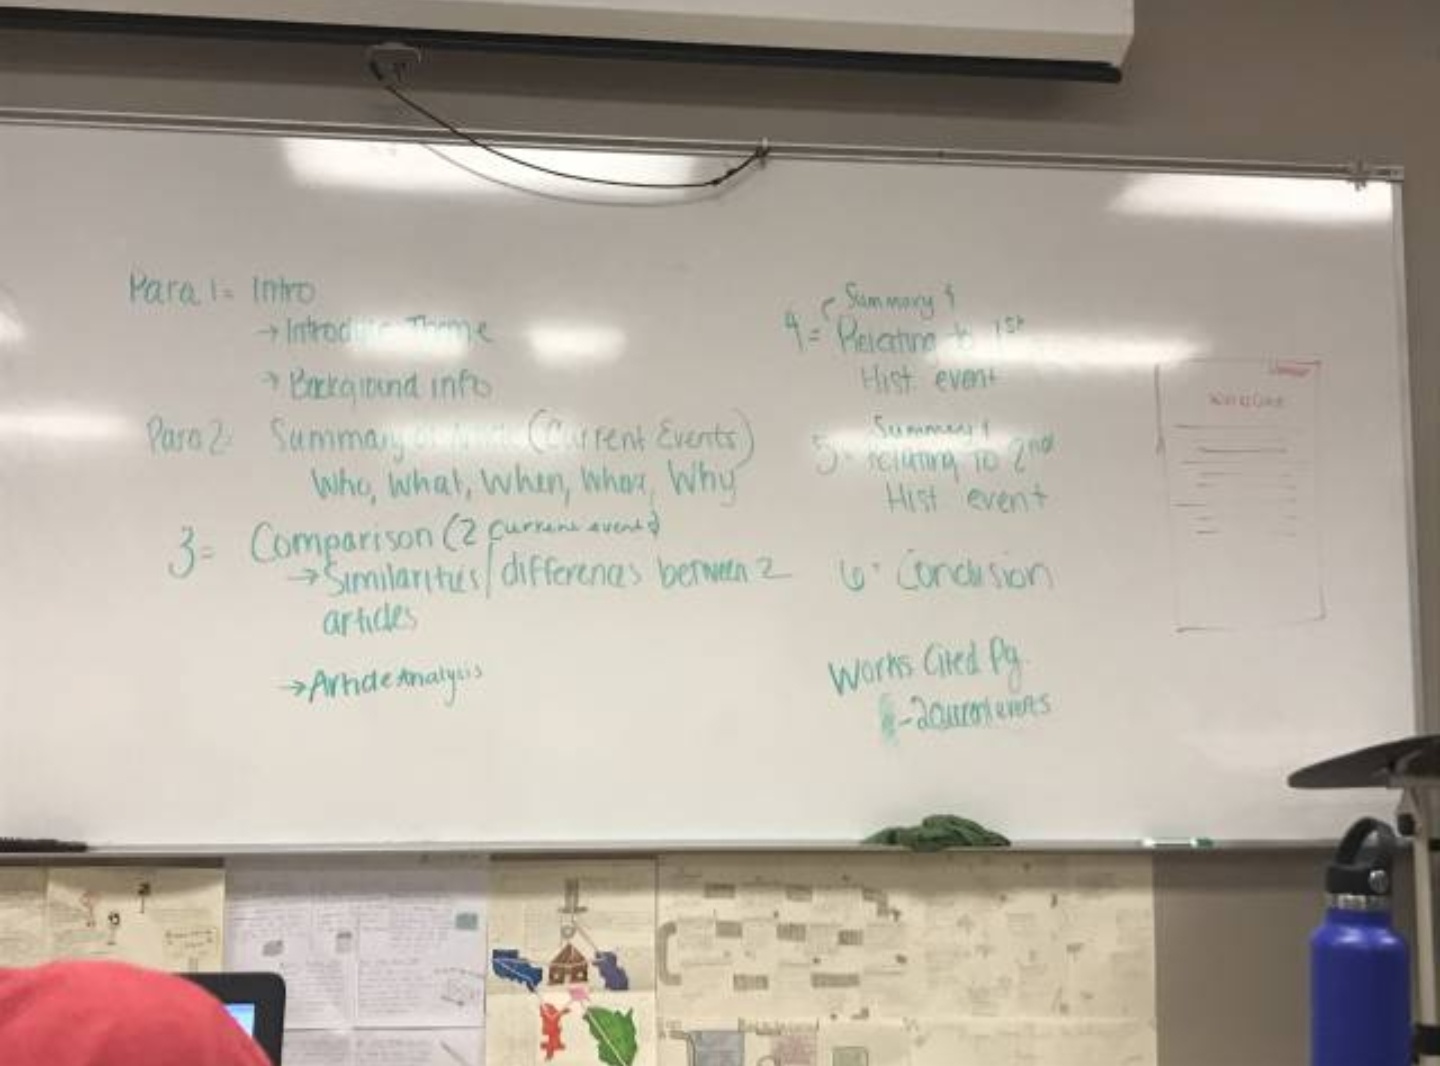 Para 1= Intro
→ Introduce Theme
→ Background info
Para 2= Summary (Current Events)
Who, What, When, Where, Why
3= Comparison (2 current events)
→ Similarities/differences between 2
articles
→ Article Analysis
4= Summary &
Relating to 1st
Hist event
5= Summary &
relating to 2nd
Hist event
6= Conclusion
Works Cited Pg
-2 current events